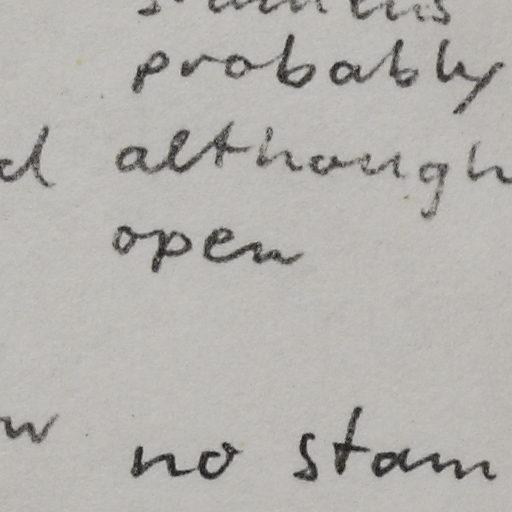 probably
although
open
no stam